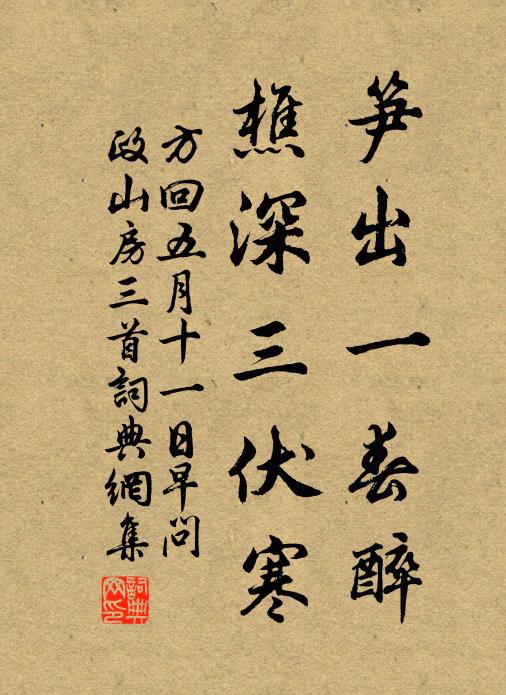 笋出一春醉
樵深三伏寒
方回五月十一日早问
政山房三首詞典網集
詞典网印